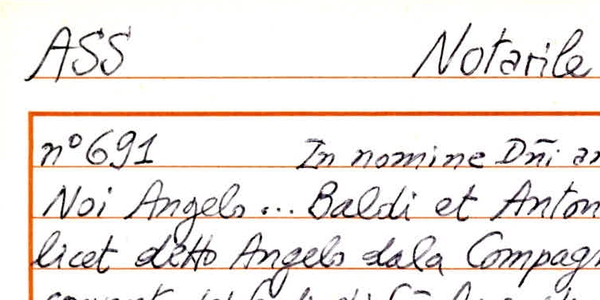 ASS Notarile
n°691 In nomine Dn̄i an
Noi Angelo ... Baldi et Anton
licet detto Angelo dala Compagn